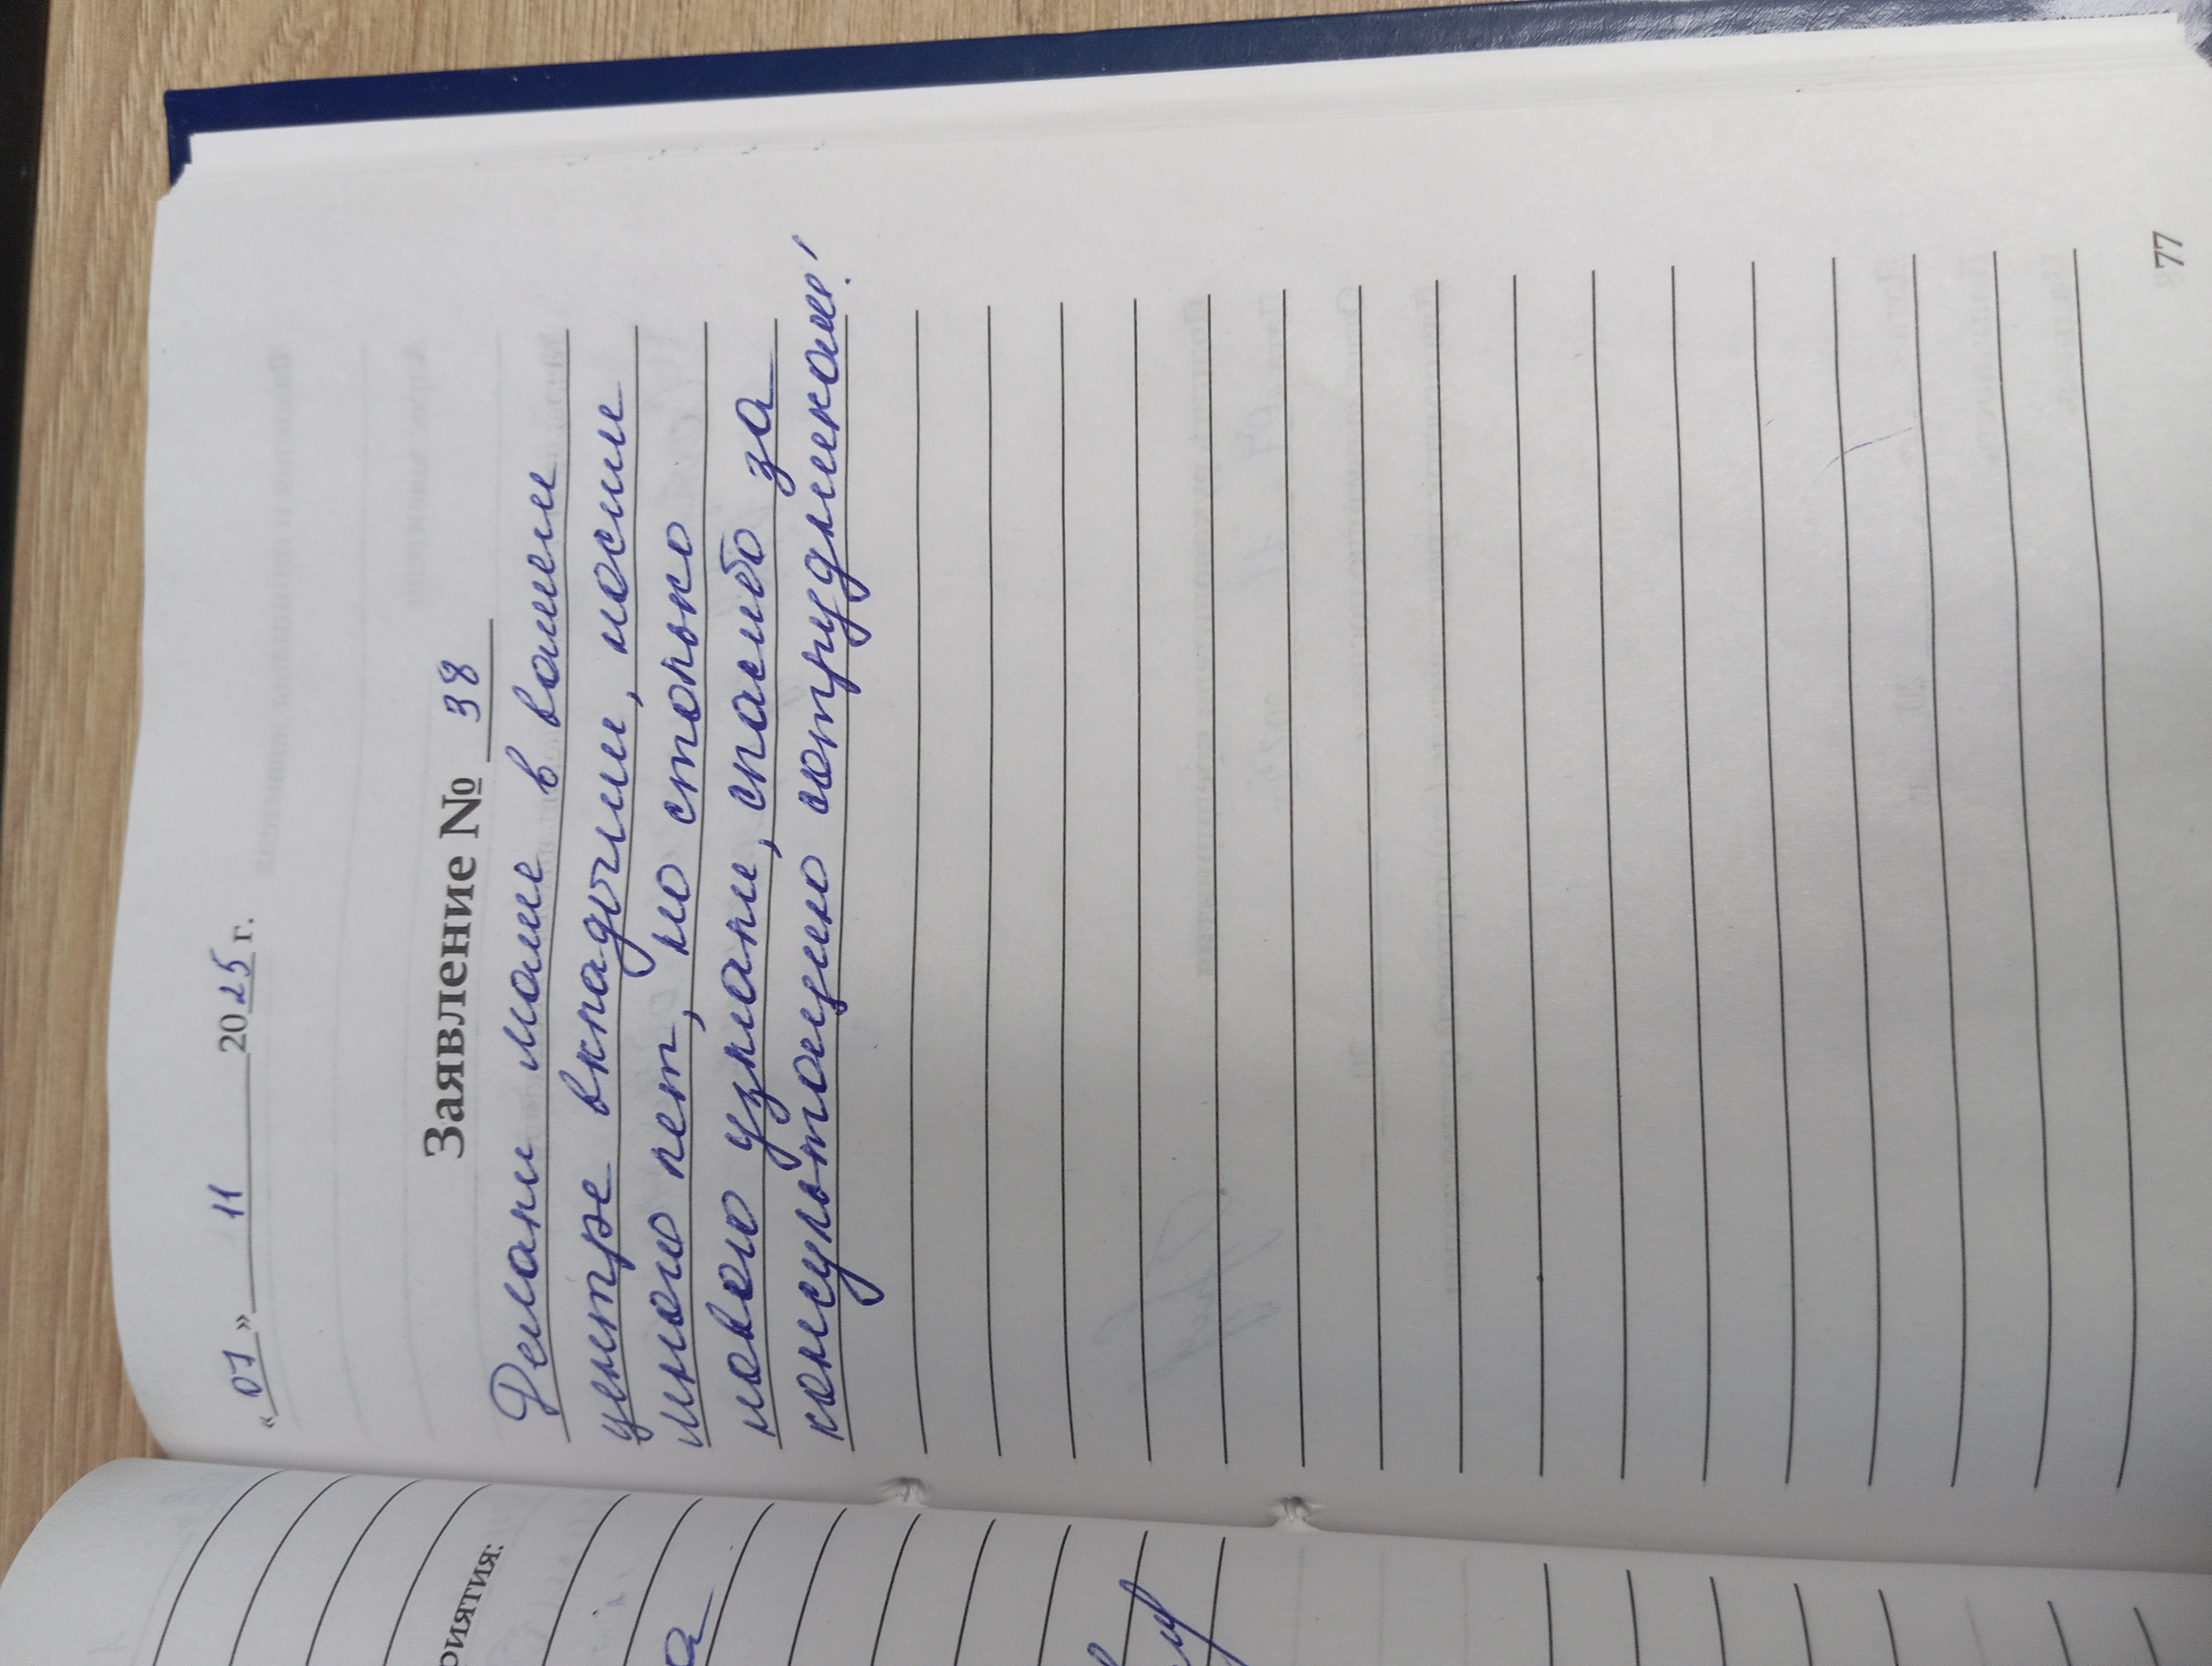 «01» 11 2025 г.
Заявление № 38
Делали маме в вашем
центре вкладыши, носим
много лет, но столько
нового узнали, спасибо за
консультацию сотрудникам!
77
риятия: